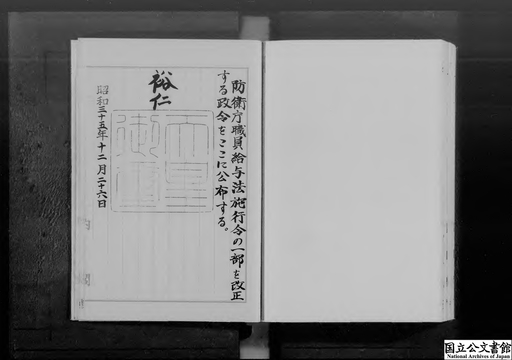 防衛庁職員給与法施行令の一部を改正
する政令をここに公布する。
裕仁
天皇御璽
昭和三十五年十二月二十六日
国立公文書館
National Archives of Japan